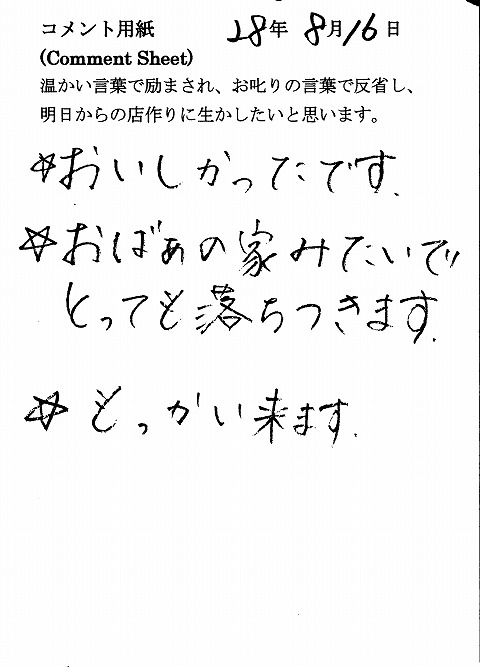 コメント用紙 28年 8月16日
(Comment Sheet)
温かい言葉で励まされ、お叱りの言葉で反省し、
明日からの店作りに生かしたいと思います。
☆おいしかったです.
☆おばぁの家みたいで
とっても落ちつきます.
☆もっかい来ます.